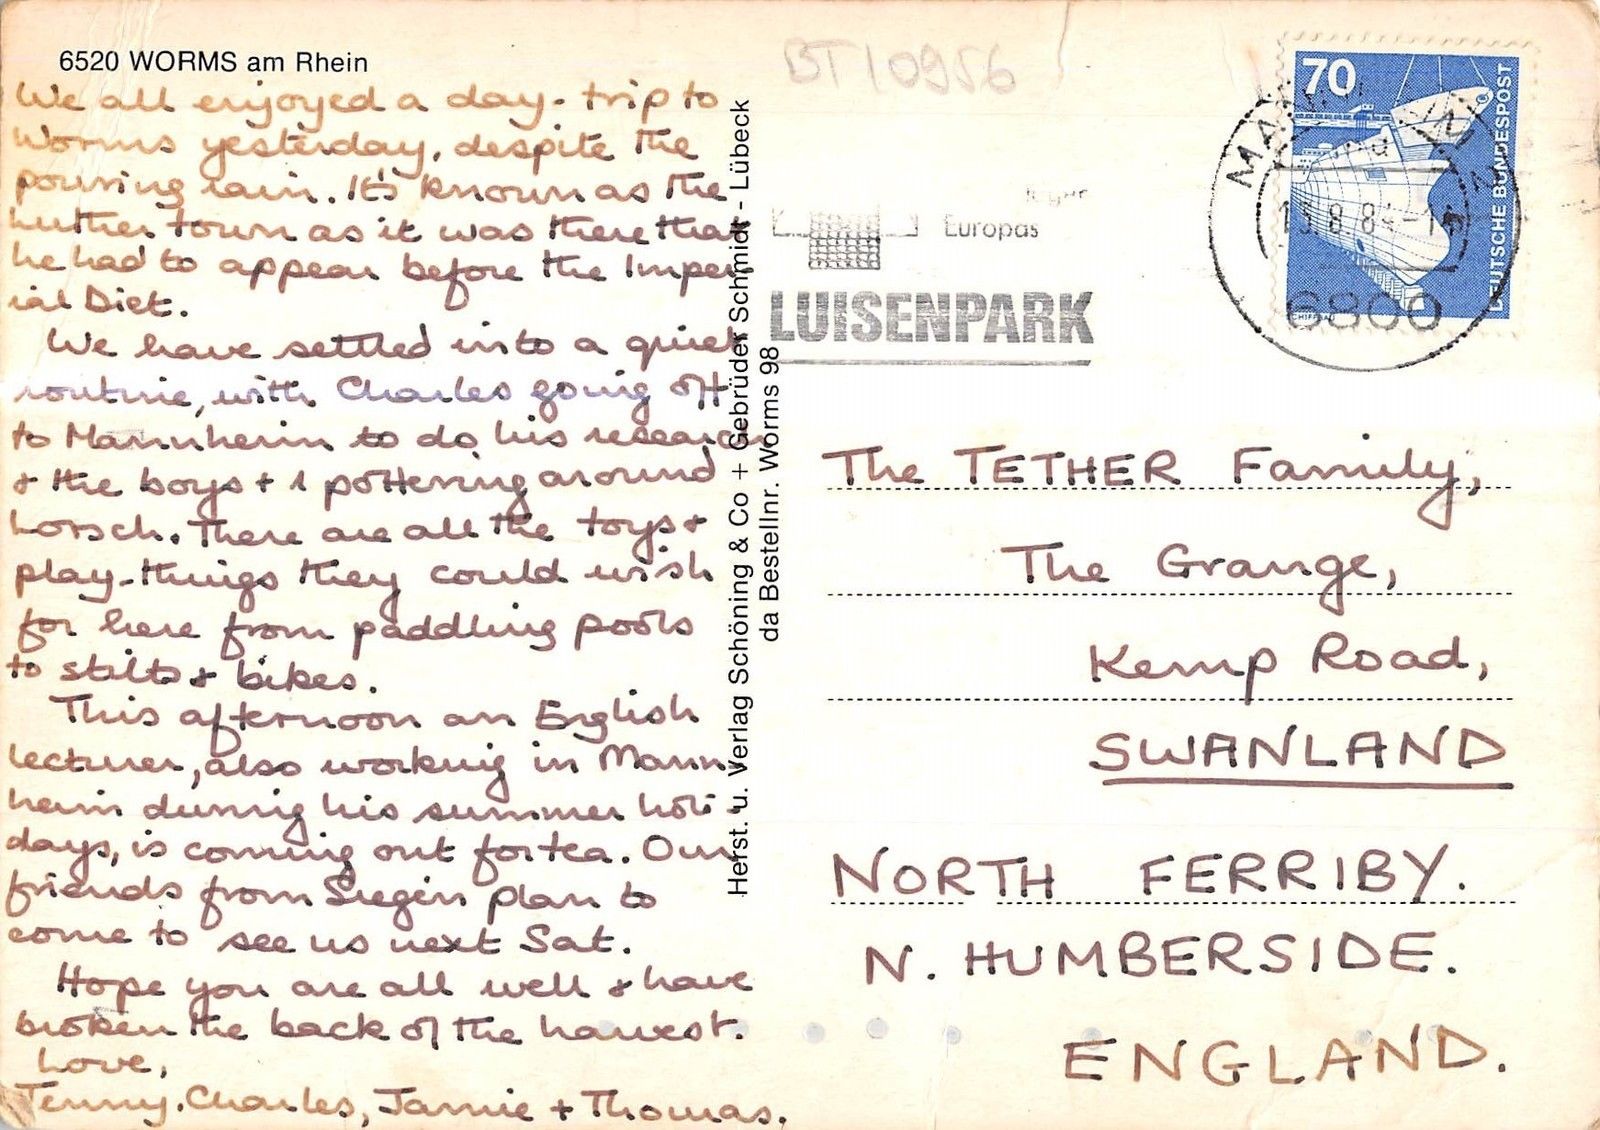 6520 WORMS am Rhein
We all enjoyed a day-trip to
Worms yesterday, despite the
pouring rain. It's known as the
Luther town as it was there that
he had to appear before the Imper
ial Diet.
We have settled into a quiet
routine, with Charles going off
to Mannheim to do his research
& the boys + I pottering around
Lorsch. There are all the toys &
play-things they could wish
for here from paddling pools
to stilts & bikes.
This afternoon an English
lecturer, also working in Mann-
heim during his summer holi-
days, is coming out for tea. Our
friends from Siegen plan to
come to see us next Sat.
Hope you are all well & have
broken the back of the harvest.
Love,
Jenny, Charles, Jamie + Thomas.
Herst. u. Verlag Schöning & Co + Gebrüder Schmidt - Lübeck
da Bestellnr. Worms 98
BT10956
Europas
LUISENPARK
70
DEUTSCHE BUNDESPOST
6800
The TETHER Family,
The Grange,
Kemp Road,
SWANLAND
NORTH FERRIBY.
N. HUMBERSIDE.
ENGLAND.